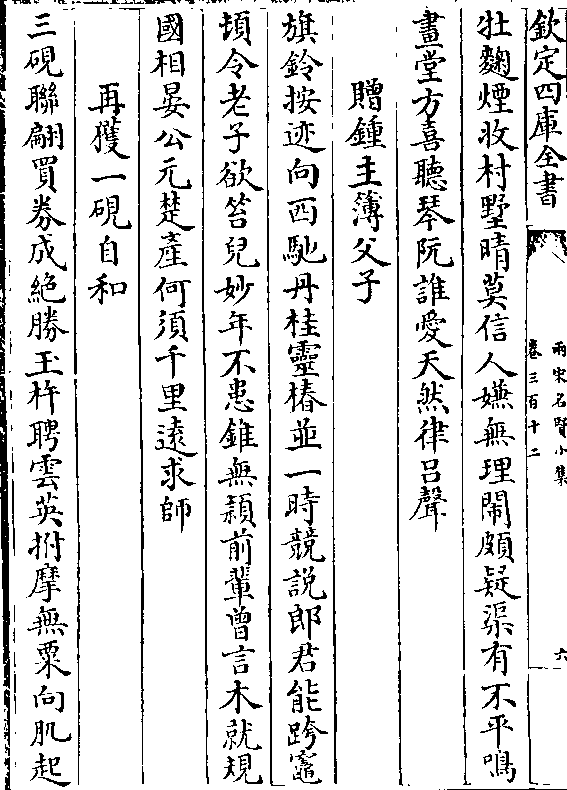 欽定四庫全書
兩宋名賢小集
卷三百十二
六
牡麴煙收村墅晴莫信人嫌無理鬧頗疑渠有不平鳴
畫堂方喜聽琴阮誰愛天然律呂聲
贈鍾主簿父子
旗鈴按迹向西馳丹桂靈椿並一時競説郎君能跨竈
頃令老子欲笞兒妙年不患錐無穎前輩曾言木就規
國相晏公元楚產何須千里逺求師
再獲一硯自和
三硯聯翩買券成絶勝玉杵聘雲英拊摩無粟向肌起